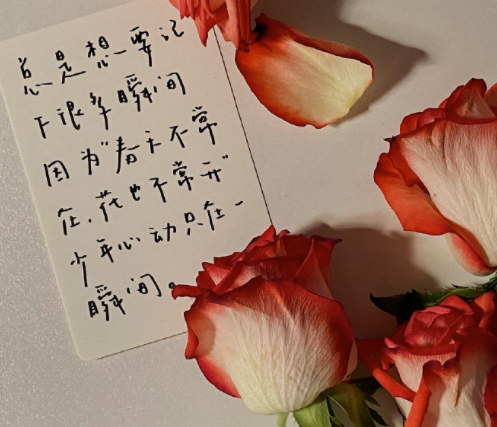 总是想要记
下很多瞬间
因为“春天不常
在，花也不常开”
少年心动只在一
瞬间。